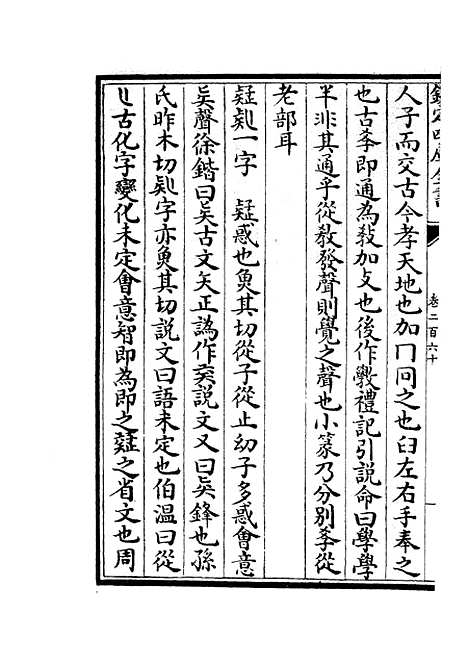 欽定四庫全書
卷二百六十
人子而交古今孝天地也加冂同之也臼左右手奉之
也古孝即通為敎加攴也後作斆禮記引說命曰學學
半非其通乎從敎發聲則覺之聲也小篆乃分別孝從
老部耳
疑𠤗一字　疑惑也魚其切從子從止幼子多惑會意
矣聲徐鍇曰矣古文矢正譌作矣説文又曰矣鋒也孫
氏昨木切𠤗字亦魚其切説文曰語未定也伯温曰從
𠤎古化字變化未定會意智即為即之薿之省文也周